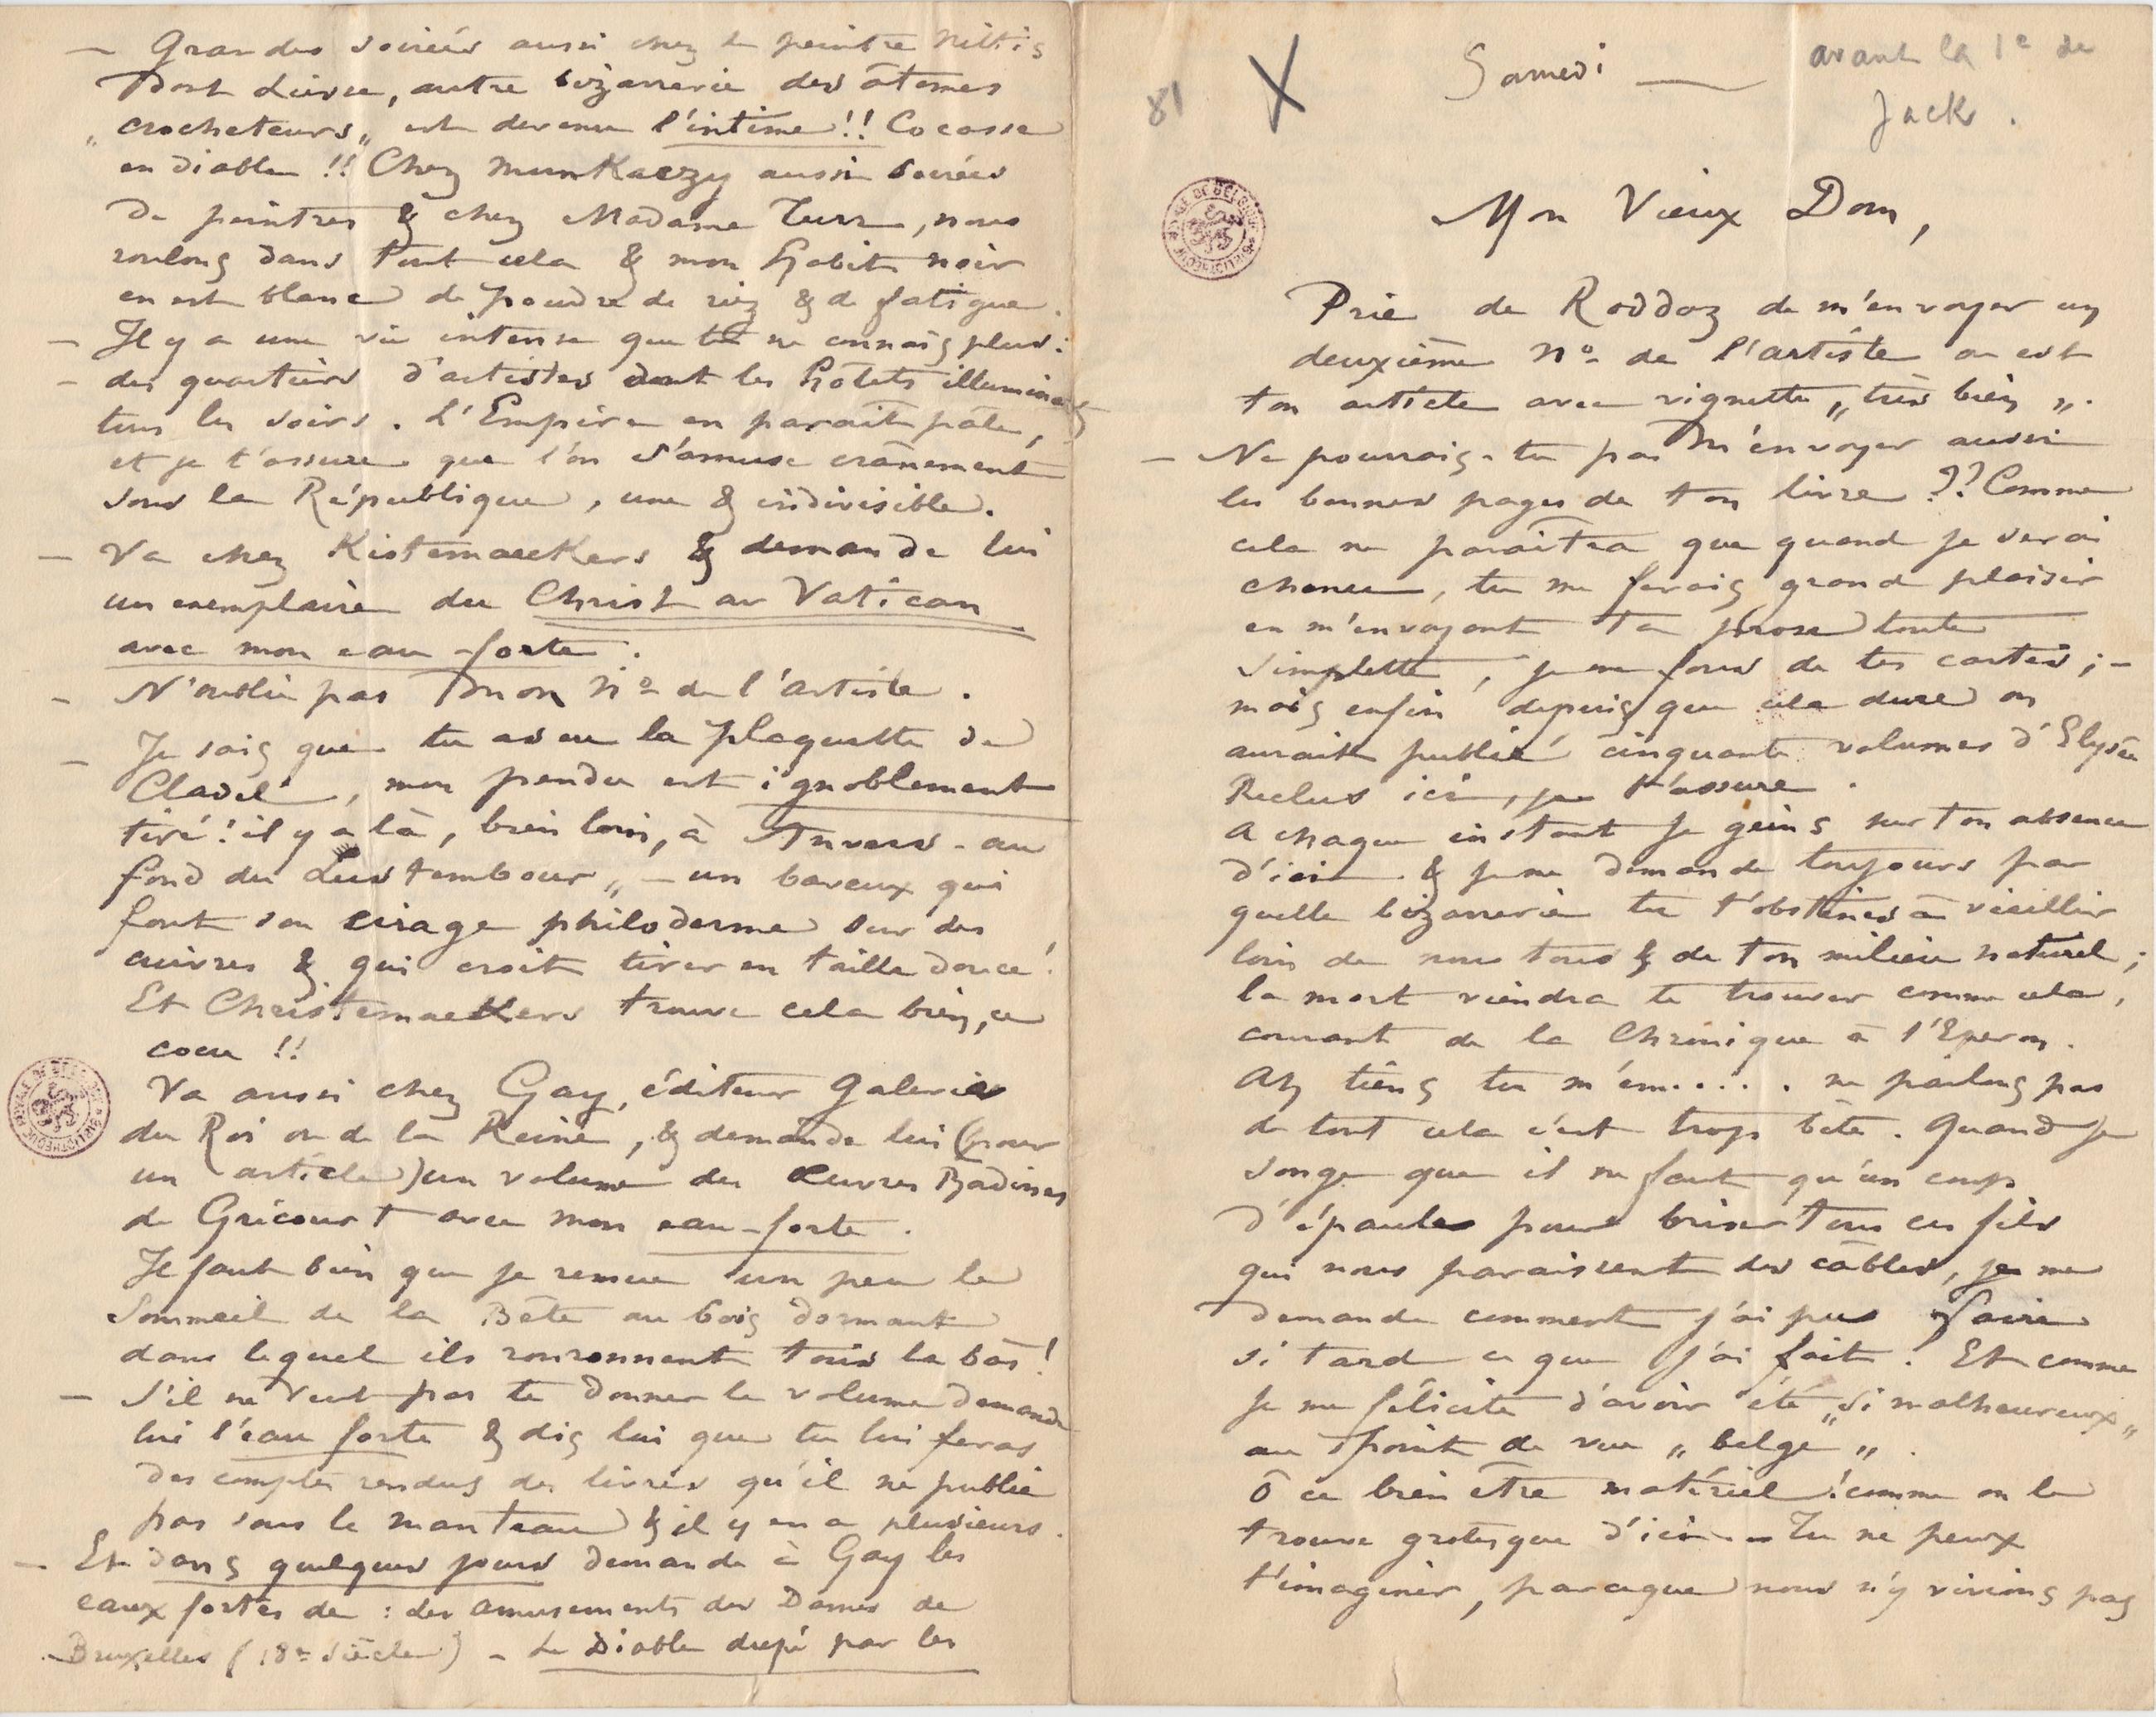 Samedi —
avant la 1e de
Jack.
81
X
Mon Vieux Dom,
Prie de Roddaz de m'envoyer un
deuxième No de l'artiste où est
ton article avec vignette „très bien „.
— Ne pourrais-tu pas m'envoyer aussi
les bonnes pages de ton livre ?? Comme
cela ne paraîtra que quand je serai
chenu, tu me ferais grand plaisir
en m'envoyant ta prose toute
simplette, je me fous de tes cartes ; –
mais enfin depuis que cela dure on
aurait publié cinquante volumes d'Elysée
Reclus ici, je t'assure.
A chaque instant je geins sur ton absence
d'ici & je me demande toujours par
quelle bizarrerie tu t'obstines à vieillir
loin de nous tous & de ton milieu naturel ;
la mort viendra te trouver comme cela,
courant de la Chronique à l'Eperon.
Ah tiens tu m'em..... ne parlons pas
de tout cela c'est trop bête. Quand je
songe que il ne faut qu'un coup
d'épaules pour briser tous ces fils
qui nous paraissent des câbles, je me
demande comment j'ai pu faire
si tard ce que j'ai fait ! Et comme
je me félicite d'avoir été „si malheureux„
au point de vue „belge„.
Ô ce bien être matériel ! comme on le
trouve grotesque d'ici – Tu ne peux
t'imaginer, parceque nous n'y vivions pas
— Grandes soirées aussi chez le peintre Nittis
dont Liesse, autre bizarrerie des atomes
„crocheteurs„ est devenu l'intime !! Cocasse
en diable !! Chez Munkaczy aussi soirées
de peintres & chez Madame Turr, nous
roulons dans tout cela & mon habit noir
en est blanc de poudre de riz & de fatigue.
— Il y a une vie intense que tu ne connais plus :
– des quartiers d'artistes dont les hôtels illuminent
tous les soirs. L'Empire en paraît pâle,
et je t'assure que l'on s'amuse crânement
sous la République, une & indivisible.
— Va chez Kistemaeckers & demande lui
un exemplaire du Christ au Vatican
avec mon eau-forte.
– N'oublie pas mon No de l'artiste.
– Je sais que tu as eu la plaquette de
Cladel, mon pendu est ignoblement
tiré ! il y a là, bien loin, à Anvers – au
fond du Lus tembour„ – un baveux qui
fout son cirage philoderme sur des
cuivres & qui croit tirer en taille douce !
Et Christemaekers trouve cela bien, ce
cocu !!
Va aussi chez Gay, éditeur Galeries
du Roi ou de la Reine, & demande lui (pour
un article) un volume des Œuvres Badines
de Gricourt avec mon eau-forte.
Il faut bien que je remue un peu le
Sommeil de la Bête au bois dormant
dans lequel ils ronronnent tous là bas !
— S'il ne veut pas te donner le volume demande
lui l'eau forte & dis lui que tu lui feras
des comptes rendus des livres qu'il ne publie
pas sous le manteau & il y en a plusieurs.
— Et dans quelques jours demande à Gay les
eaux fortes de : des amusements des Dames de
Bruxelles (18e Siècle) – Le Diable dupé par les